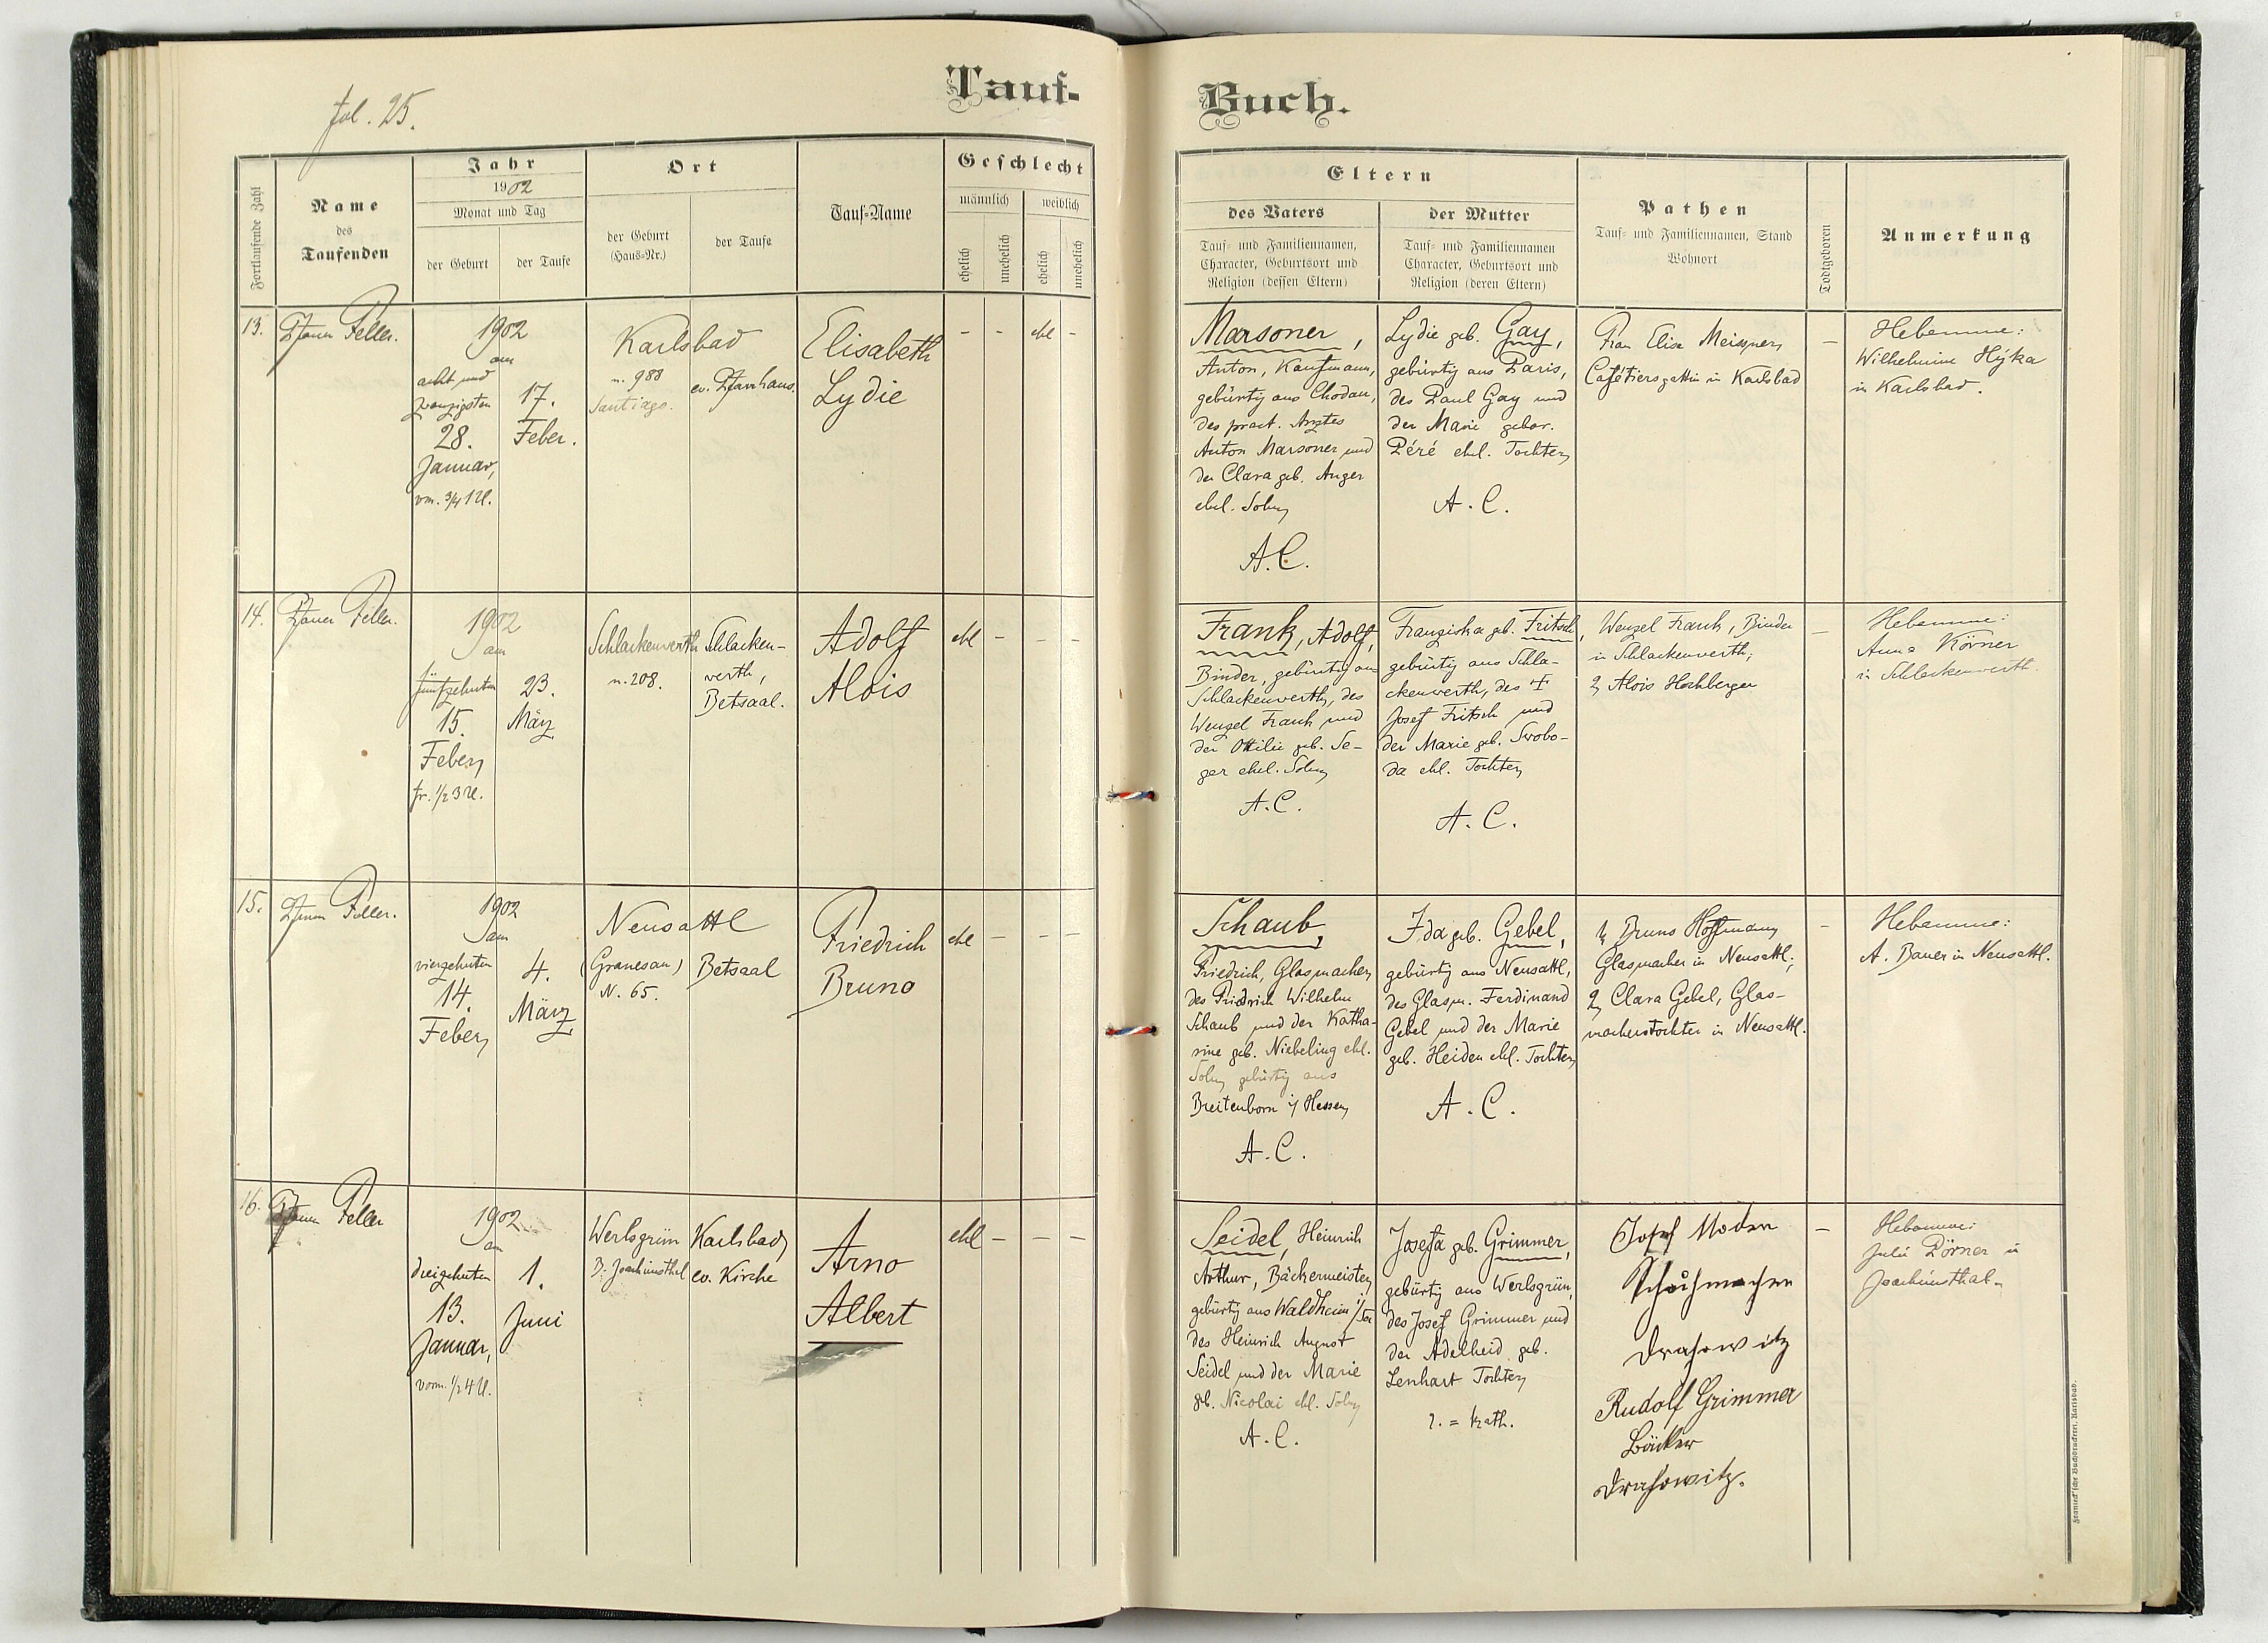 fol. 25.
Tauf-
Buch.
Fortlaufende Zahl
Name
des
Taufenden
Jahr
1902
Monat und Tag
der Geburt
der Taufe
Ort
der Geburt
(Haus-Nr.)
der Taufe
Tauf-Name
Geschlecht
männlich
weiblich
ehelich
unehelich
ehelich
unehelich
Eltern
des Vaters
Tauf- und Familiennamen,
Character, Geburtsort und
Religion (dessen Eltern)
der Mutter
Tauf- und Familiennamen
Character, Geburtsort und
Religion (deren Eltern)
Pathen
Tauf- und Familiennamen, Stand
Wohnort
Todtgeboren
Anmerkung
13.
Pfarrer Feller.
1902
am
acht und
zwanzigsten
28.
Januar,
vm. 3/4 1 U.
17.
Feber.
Karlsbad
n. 988
Santiago.
ev. Pfarrhaus.
Elisabeth
Lydie
- - ehl -
Marsoner,
Anton, Kaufmann,
gebürtig aus Chodau,
des pract. Arztes
Anton Marsoner und
der Clara geb. Anger
ehel. Sohn
A.C.
Lydie geb. Gay,
gebürtig aus Paris,
des Paul Gay und
der Marie gebor.
Péré ehel. Tochter
A.C.
Frau Elise Meissner,
Cafétiersgattin in Karlsbad
-
Hebamme:
Wilhelmine Hýka
in Karlsbad.
14.
Pfarrer Feller.
1902
am
fünfzehnten
15.
Feber,
fr. 1/2 3 U.
23.
März
Schlackenwerth
n. 208.
Schlacken-
werth,
Betsaal.
Adolf
Alois
ehl - - -
Frank, Adolf,
Binder, gebürtig aus
Schlackenwerth, des
Wenzel Frank und
der Ottilie geb. Se-
ger ehel. Sohn
A.C.
Franziska geb. Fritsch,
gebürtig aus Schla-
ckenwerth, des †
Josef Fritsch und
der Marie geb. Swobo-
da ehl. Tochter
A.C.
Wenzel Frank, Binder
in Schlackenwerth;
2, Alois Hochberger
-
Hebamme:
Anna Körner
in Schlackenwerth.
15.
Pfarrer Feller.
1902
am
vierzehnten
14.
Feber,
4.
März
Neusattl
(Granesau)
N. 65.
Betsaal
Friedrich
Bruno
ehl - - -
Schaub,
Friedrich, Glasmacher,
des Friedrich Wilhelm
Schaub und der Katha-
rine geb. Niebeling ehl.
Sohn gebürtig aus
Breitenborn i/ Hessen,
A.C.
Ida geb. Gebel,
gebürtig aus Neusattl,
des Glasm. Ferdinand
Gebel und der Marie
geb. Heiden ehl. Tochter,
A.C.
1, Bruno Hoffmann,
Glasmacher in Neusattl;
2, Clara Gebel, Glas-
macherstochter in Neusattl.
-
Hebamme:
A. Bauer in Neusattl.
16.
Pfarrer Feller
1902
am
dreizehnten
13.
Januar,
vorm. 1/2 4 U.
1.
Juni
Werlsgrün
B. Joachimsthal
Karlsbad,
ev. Kirche
Arno
Albert
ehl - - -
Seidel, Heinrich
Arthur, Bäckermeister,
gebürtig aus Waldheim i/Sa
des Heinrich August
Seidel und der Marie
geb. Nicolai ehl. Sohn
A.C.
Josefa geb. Grimmer,
gebürtig aus Werlsgrün,
des Josef Grimmer und
der Adelheid geb.
Lenhart Tochter,
r. = kath.
Josef Moder
Schuhmacher
Drahowitz
Rudolf Grimmer
Bäcker
Drahowitz.
-
Hebamme:
Julie Dörner in
Joachimsthal.
Franieck'sche Buchdruckerei, Karlsbad.